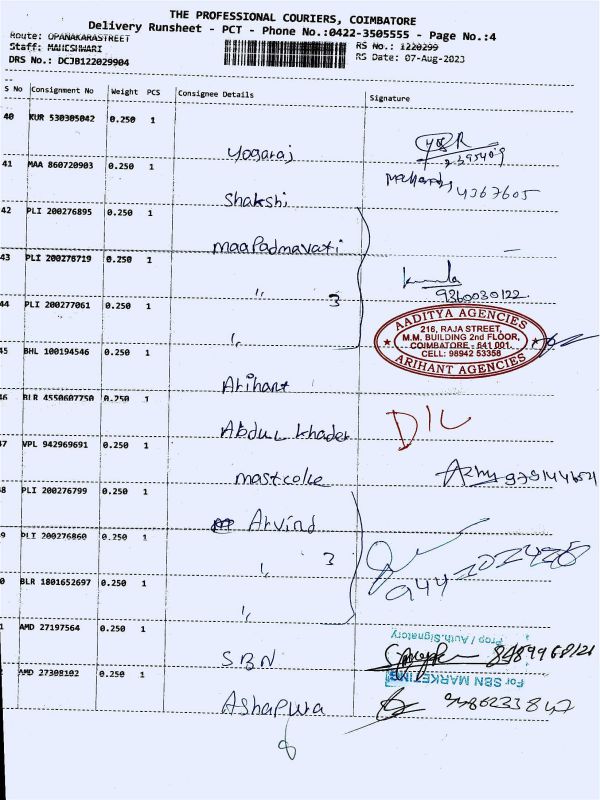 THE PROFESSIONAL COURIERS, COIMBATORE
Delivery Runsheet - PCT - Phone No.:0422-3505555 - Page No.:4
Route: OPANAKARASTREET
RS No.: 1220299
Staff: MAHESHWARI
RS Date: 07-Aug-2023
DRS No.: DCJB122029904
S No Consignment No Weight PCS Consignee Details Signature
40 KUR 530305042 0.250 1
Yogaraj
41 MAA 860720903 0.250 1
Shakshi 4367605
42 PLI 200276895 0.250 1
maaPadmavati
43 PLI 200276719 0.250 1
" 3
9360030122
44 PLI 200277061 0.250 1
"
AADITYA AGENCIES
216, RAJA STREET,
M.M. BUILDING 2nd FLOOR,
COIMBATORE - 641 001.
CELL: 98942 53358
ARIHANT AGENCIES
45 BHL 100194546 0.250 1
Arihant
46 BLR 4550607750 0.250 1
Abdul khader
D/L
47 VPL 942969691 0.250 1
mastcolke
8 PLI 200276799 0.250 1
Arvind
9 PLI 200276860 0.250 1
" 3
0 BLR 1801652697 0.250 1
"
1 AMD 27197564 0.250 1
Prop / Auth.Signatory
SBN
For SBN MARKETING
AMD 27308102 0.250 1
Ashapura 9486233847